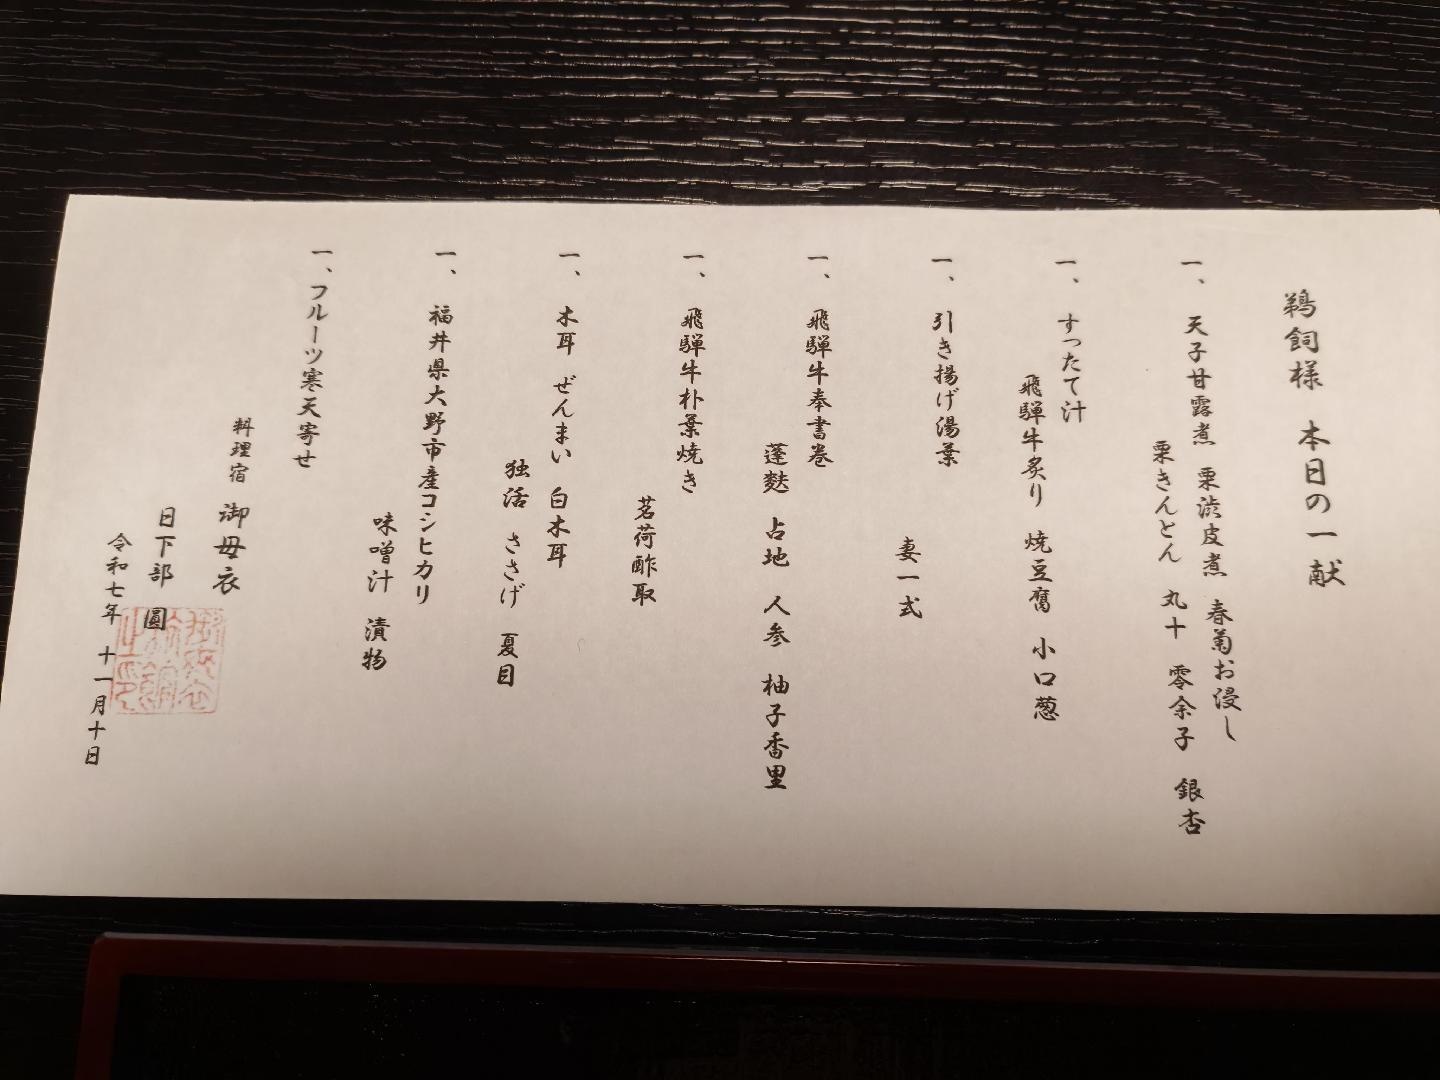 鵜飼様　本日の一献
一、天子甘露煮　栗渋皮煮　春菊お浸し
栗きんとん　丸十　零余子　銀杏
一、すったて汁
飛騨牛炙り　焼豆腐　小口葱
一、引き揚げ湯葉
妻一式
一、飛騨牛奉書巻
蓬麩　占地　人参　柚子香里
一、飛騨牛朴葉焼き
茗荷酢取
一、木耳　ぜんまい　白木耳
独活　ささげ　夏目
一、福井県大野市産コシヒカリ
味噌汁　漬物
一、フルーツ寒天寄せ
料理宿　御母衣
日下部　圓
令和七年　十一月十日